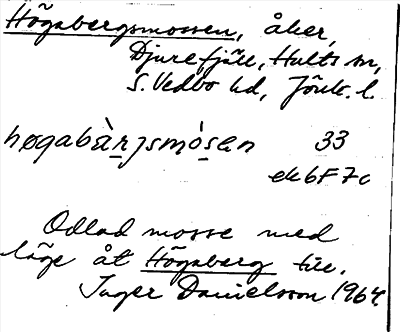 Högabergsmossen, åker,
Djurefjäll, Hults sn,
S. Vedbo hd, Jönk. l.
høgabàrjsmósen 33
ek 6F7c
Odlad mosse med
läge åt Högaberg till.
Inger Danielsson 1964.